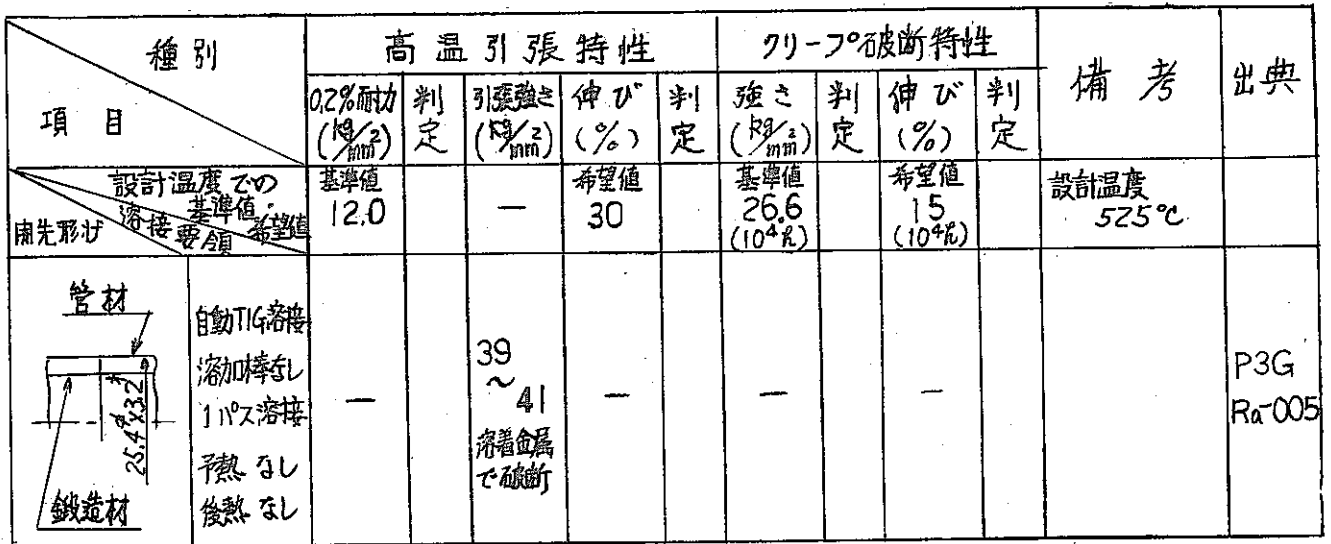 種別
高温引張特性
クリープ破断特性
備考
出典
項目
0.2%耐力
(kg/mm²)
判定
引張強さ
(kg/mm²)
伸び
(%)
判定
強さ
(kg/mm²)
判定
伸び
(%)
判定
設計温度での
基準値・希望値
溶接要領
開先形状
基準値
12.0
—
希望値
30
基準値
26.6
(10⁴h)
希望値
15
(10⁴h)
設計温度
525℃
管材
25.4φ×3.2t
鍛造材
自動TIG溶接
溶加棒なし
1パス溶接
予熱なし
後熱なし
—
39
~41
溶着金属
で破断
—
—
—
P3G
Ra-005